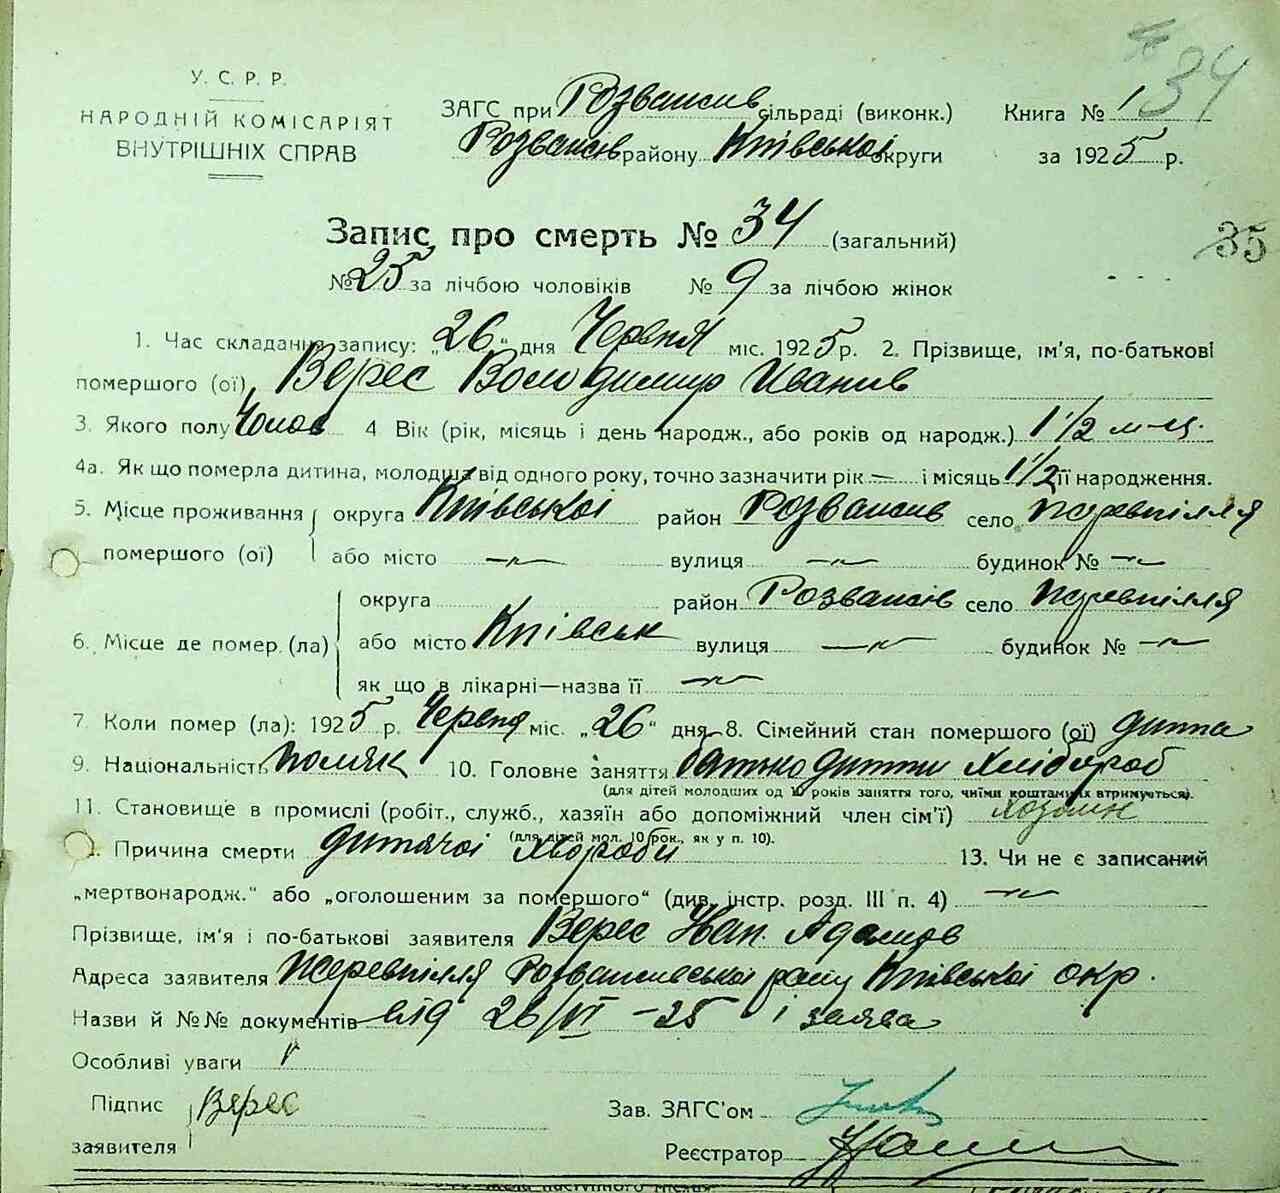 34
У. С. Р. Р.
НАРОДНІЙ КОМІСАРІЯТ
ВНУТРІШНІХ СПРАВ
ЗАГС при Розважів сільраді (виконк.) Книга № 1
Розважів району Київської округи за 1925 р.
Запис про смерть № 34 (загальний)
35
№ 25 за лічбою чоловіків № 9 за лічбою жінок
1. Час складання запису: „26" дня Червня міс. 1925 р. 2. Прізвище, ім'я, по-батькові
помершого (ої) Верес Володимир Иванив
3. Якого полу Чолов 4 Вік (рік, місяць і день народж., або років од народж.) 1 1/2 м-ц.
4а. Як що померла дитина, молодша від одного року, точно зазначити рік — і місяць 1 1/2 її народження.
5. Місце проживання округа Київської район Розважив село
помершого (ої) або місто —„— вулиця —„— будинок № —„—
округа район Розважів село
6. Місце де помер (ла) або місто Київськ вулиця —„— будинок № —„—
як що в лікарні—назва її —„—
7. Коли помер (ла): 1925 р. Червня міс. „26" дня 8. Сімейний стан помершого (ої) дитина
9. Національність Поляк 10. Головне заняття батько дитини Хлібороб
(для дітей молодших од 10 років заняття того, чиїми коштами їх втримується).
11. Становище в промислі (робіт., служб., хазяїн або допоміжний член сім'ї) Хозяин
(для дітей мол. 10 рок., як у п. 10).
Причина смерти дитячої хвороби 13. Чи не є записаний
„мертвонародж." або „оголошеним за помершого" (див. інстр. розд. III п. 4) —„—
Прізвище, ім'я і по-батькові заявителя Верес Адамов
Адреса заявителя Розваживської рану Київської окр.
Назви й №№ документів від 26/VI - 25 і заява
Особливі уваги
Підпис Верес Зав. ЗАГС'ом
заявителя Реєстратор